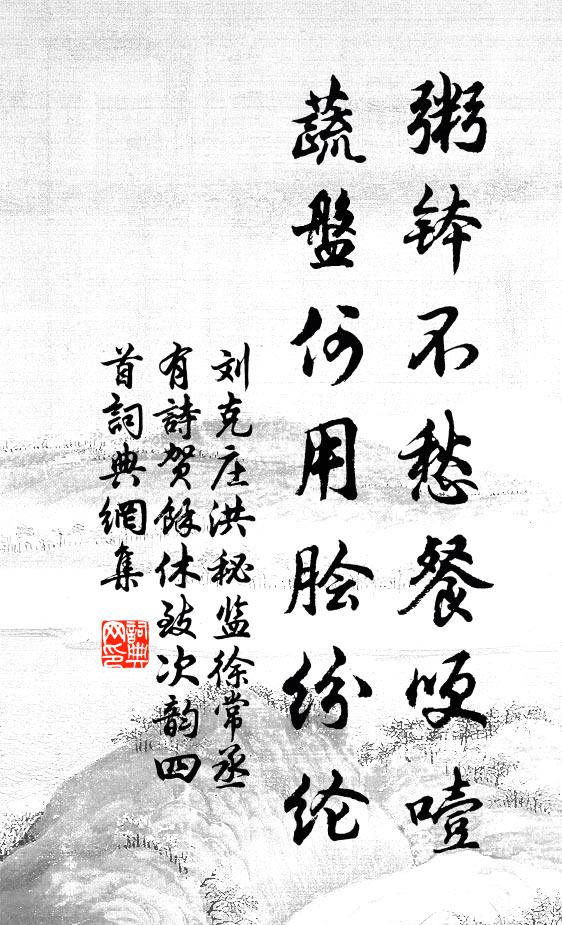 粥钵不愁餐哽噎
蔬盤何用脍纷纶
刘克庄洪秘监徐常丞
有詩贺馀休致次韵四
首詞典網集
詞典
网印